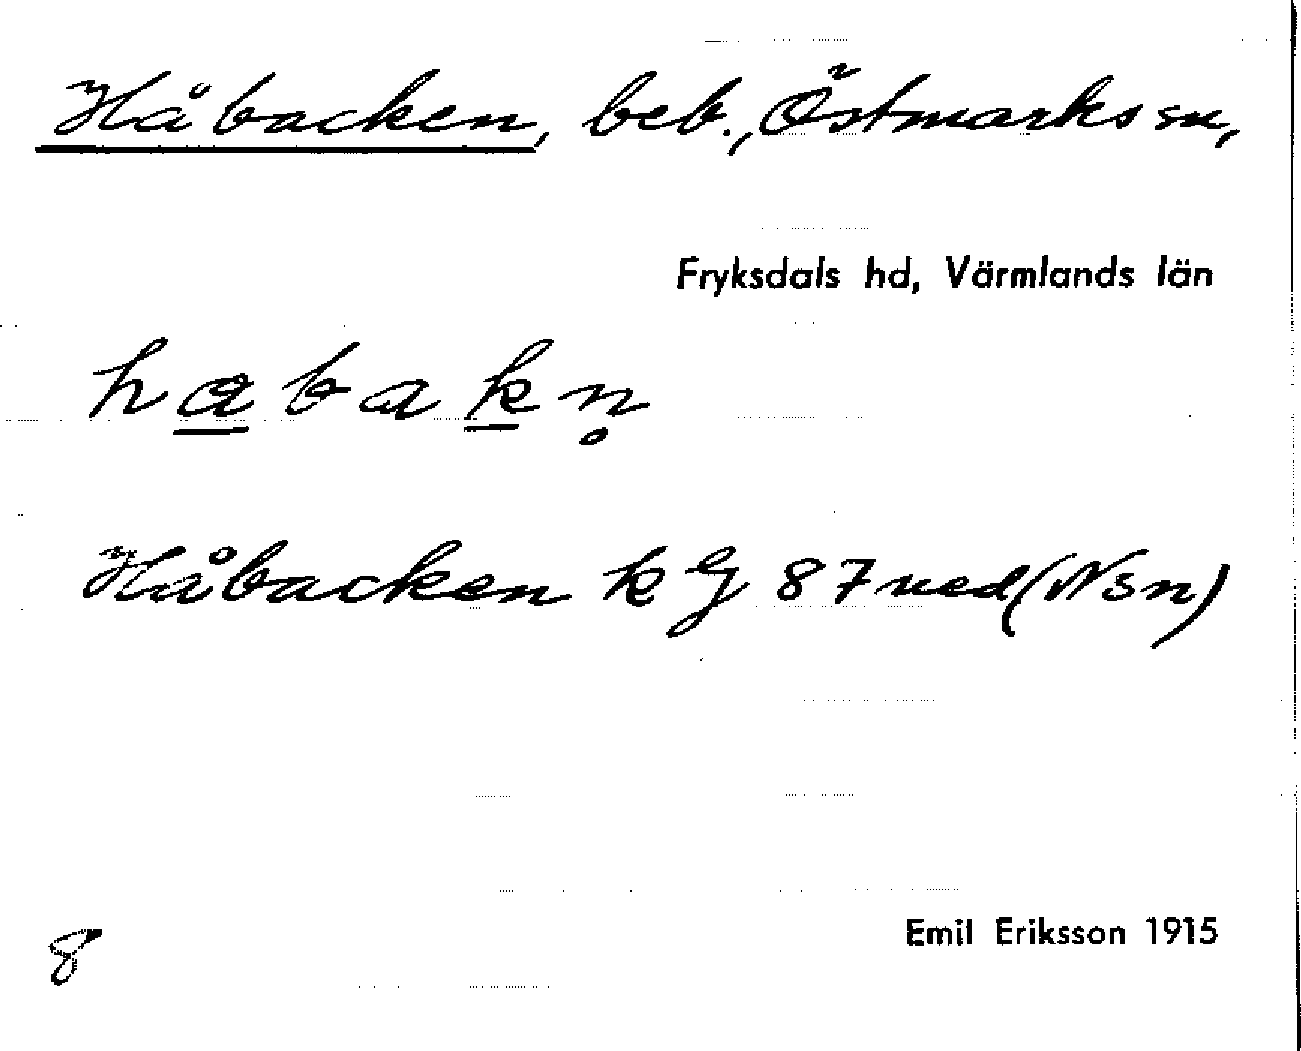 Håbacken, beb., Östmarks sn,
Fryksdals hd, Värmlands län
habakn̥
Håbacken k G 87 ned (Nsn)
8
Emil Eriksson 1915